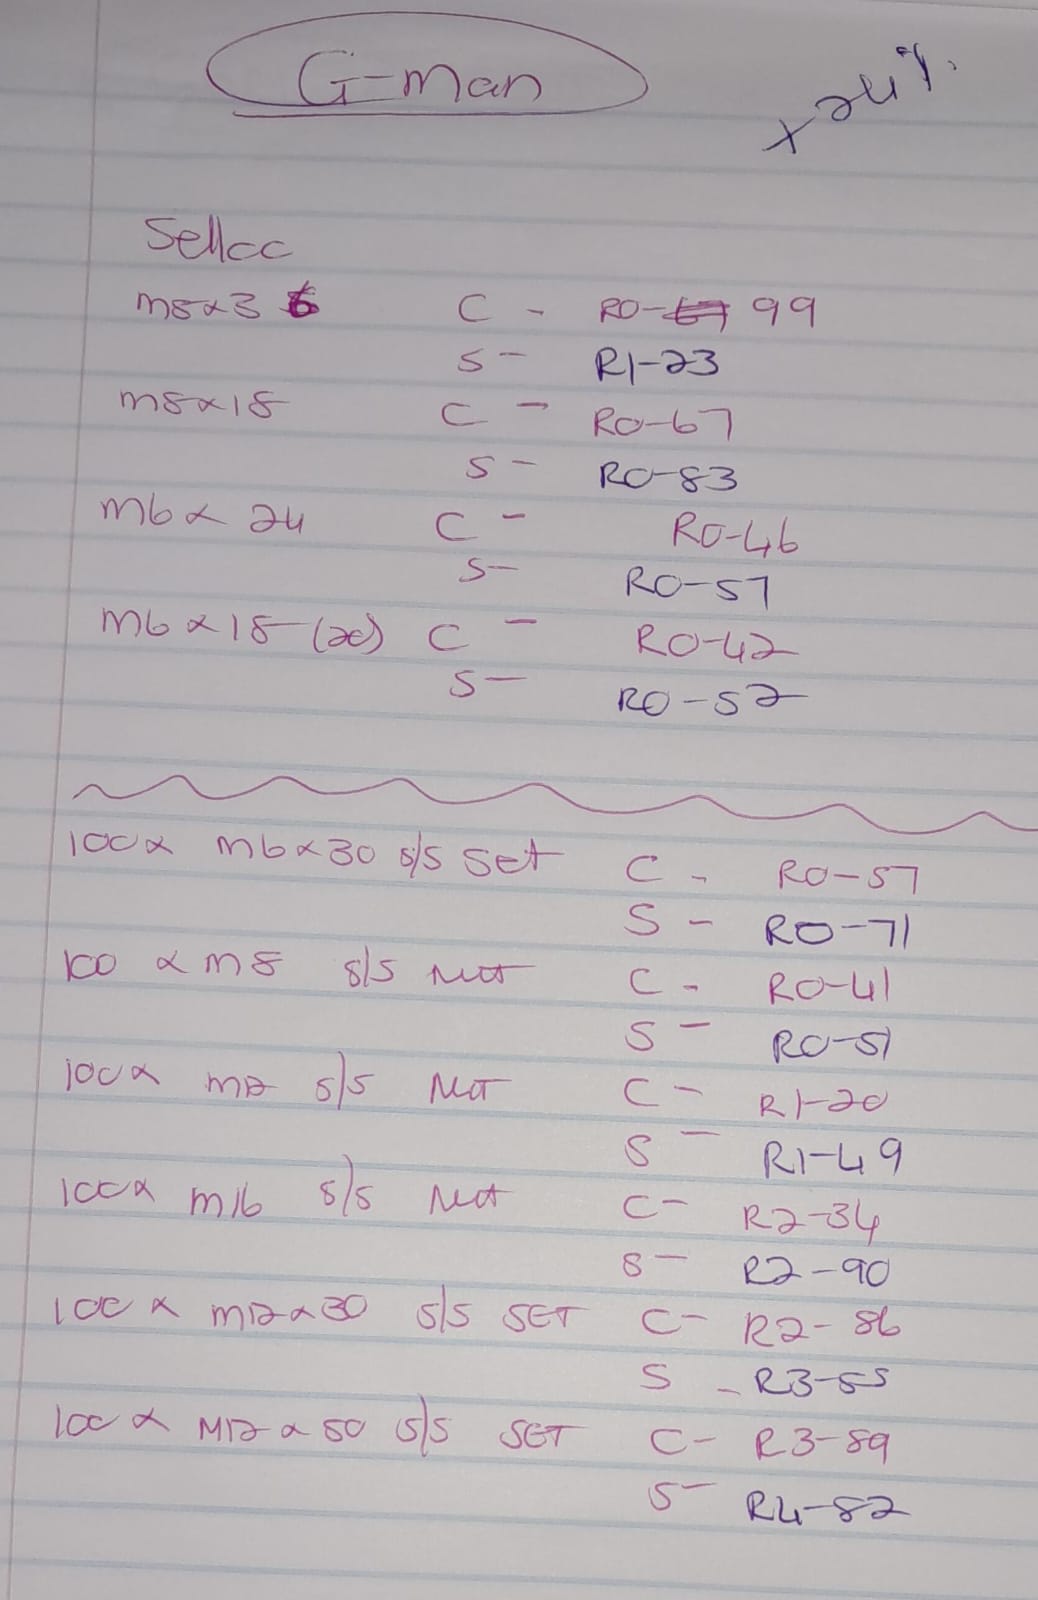 G-man
x24%
Sellcc
m8x36 C - R0-67 99
S - R1-23
m8x18 C - R0-67
S - R0-83
m6x24 C - R0-46
S - R0-57
m6x18 (20) C - R0-42
S - R0-52
100x m6x30 s/s Set C - R0-57
S - R0-71
100 x m8 s/s Nut C - R0-41
S - R0-51
100x m12 s/s Nut C - R1-20
S - R1-49
100x m16 s/s Nut C - R2-34
S - R2-90
100 x m12x30 s/s SET C - R2-86
S - R3-55
100 x M12x50 s/s SET C - R3-89
S - R4-82